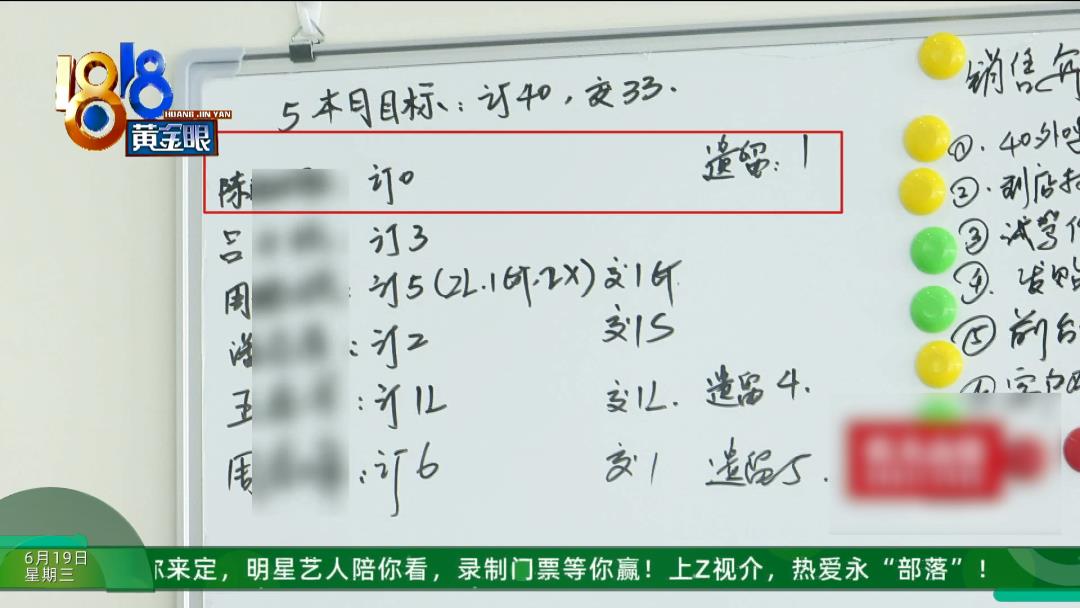 1818
HUANG JIN YAN
黄金眼
5本月目标:订40,交33.
陈 订0 遗留:1
吕 订3
周 : 订5(2L.1GT.2X)交1GT
潘 : 订2 交1S
王 : 订1L 交1L. 遗留4.
周 : 订6 交1 遗留5.
销售
①. 40外呼
②. 到店
③ 试驾
④. 发贴
⑤ 前台
6月19日
星期三
你来定，明星艺人陪你看，录制门票等你赢！上Z视介，热爱永“部落”！